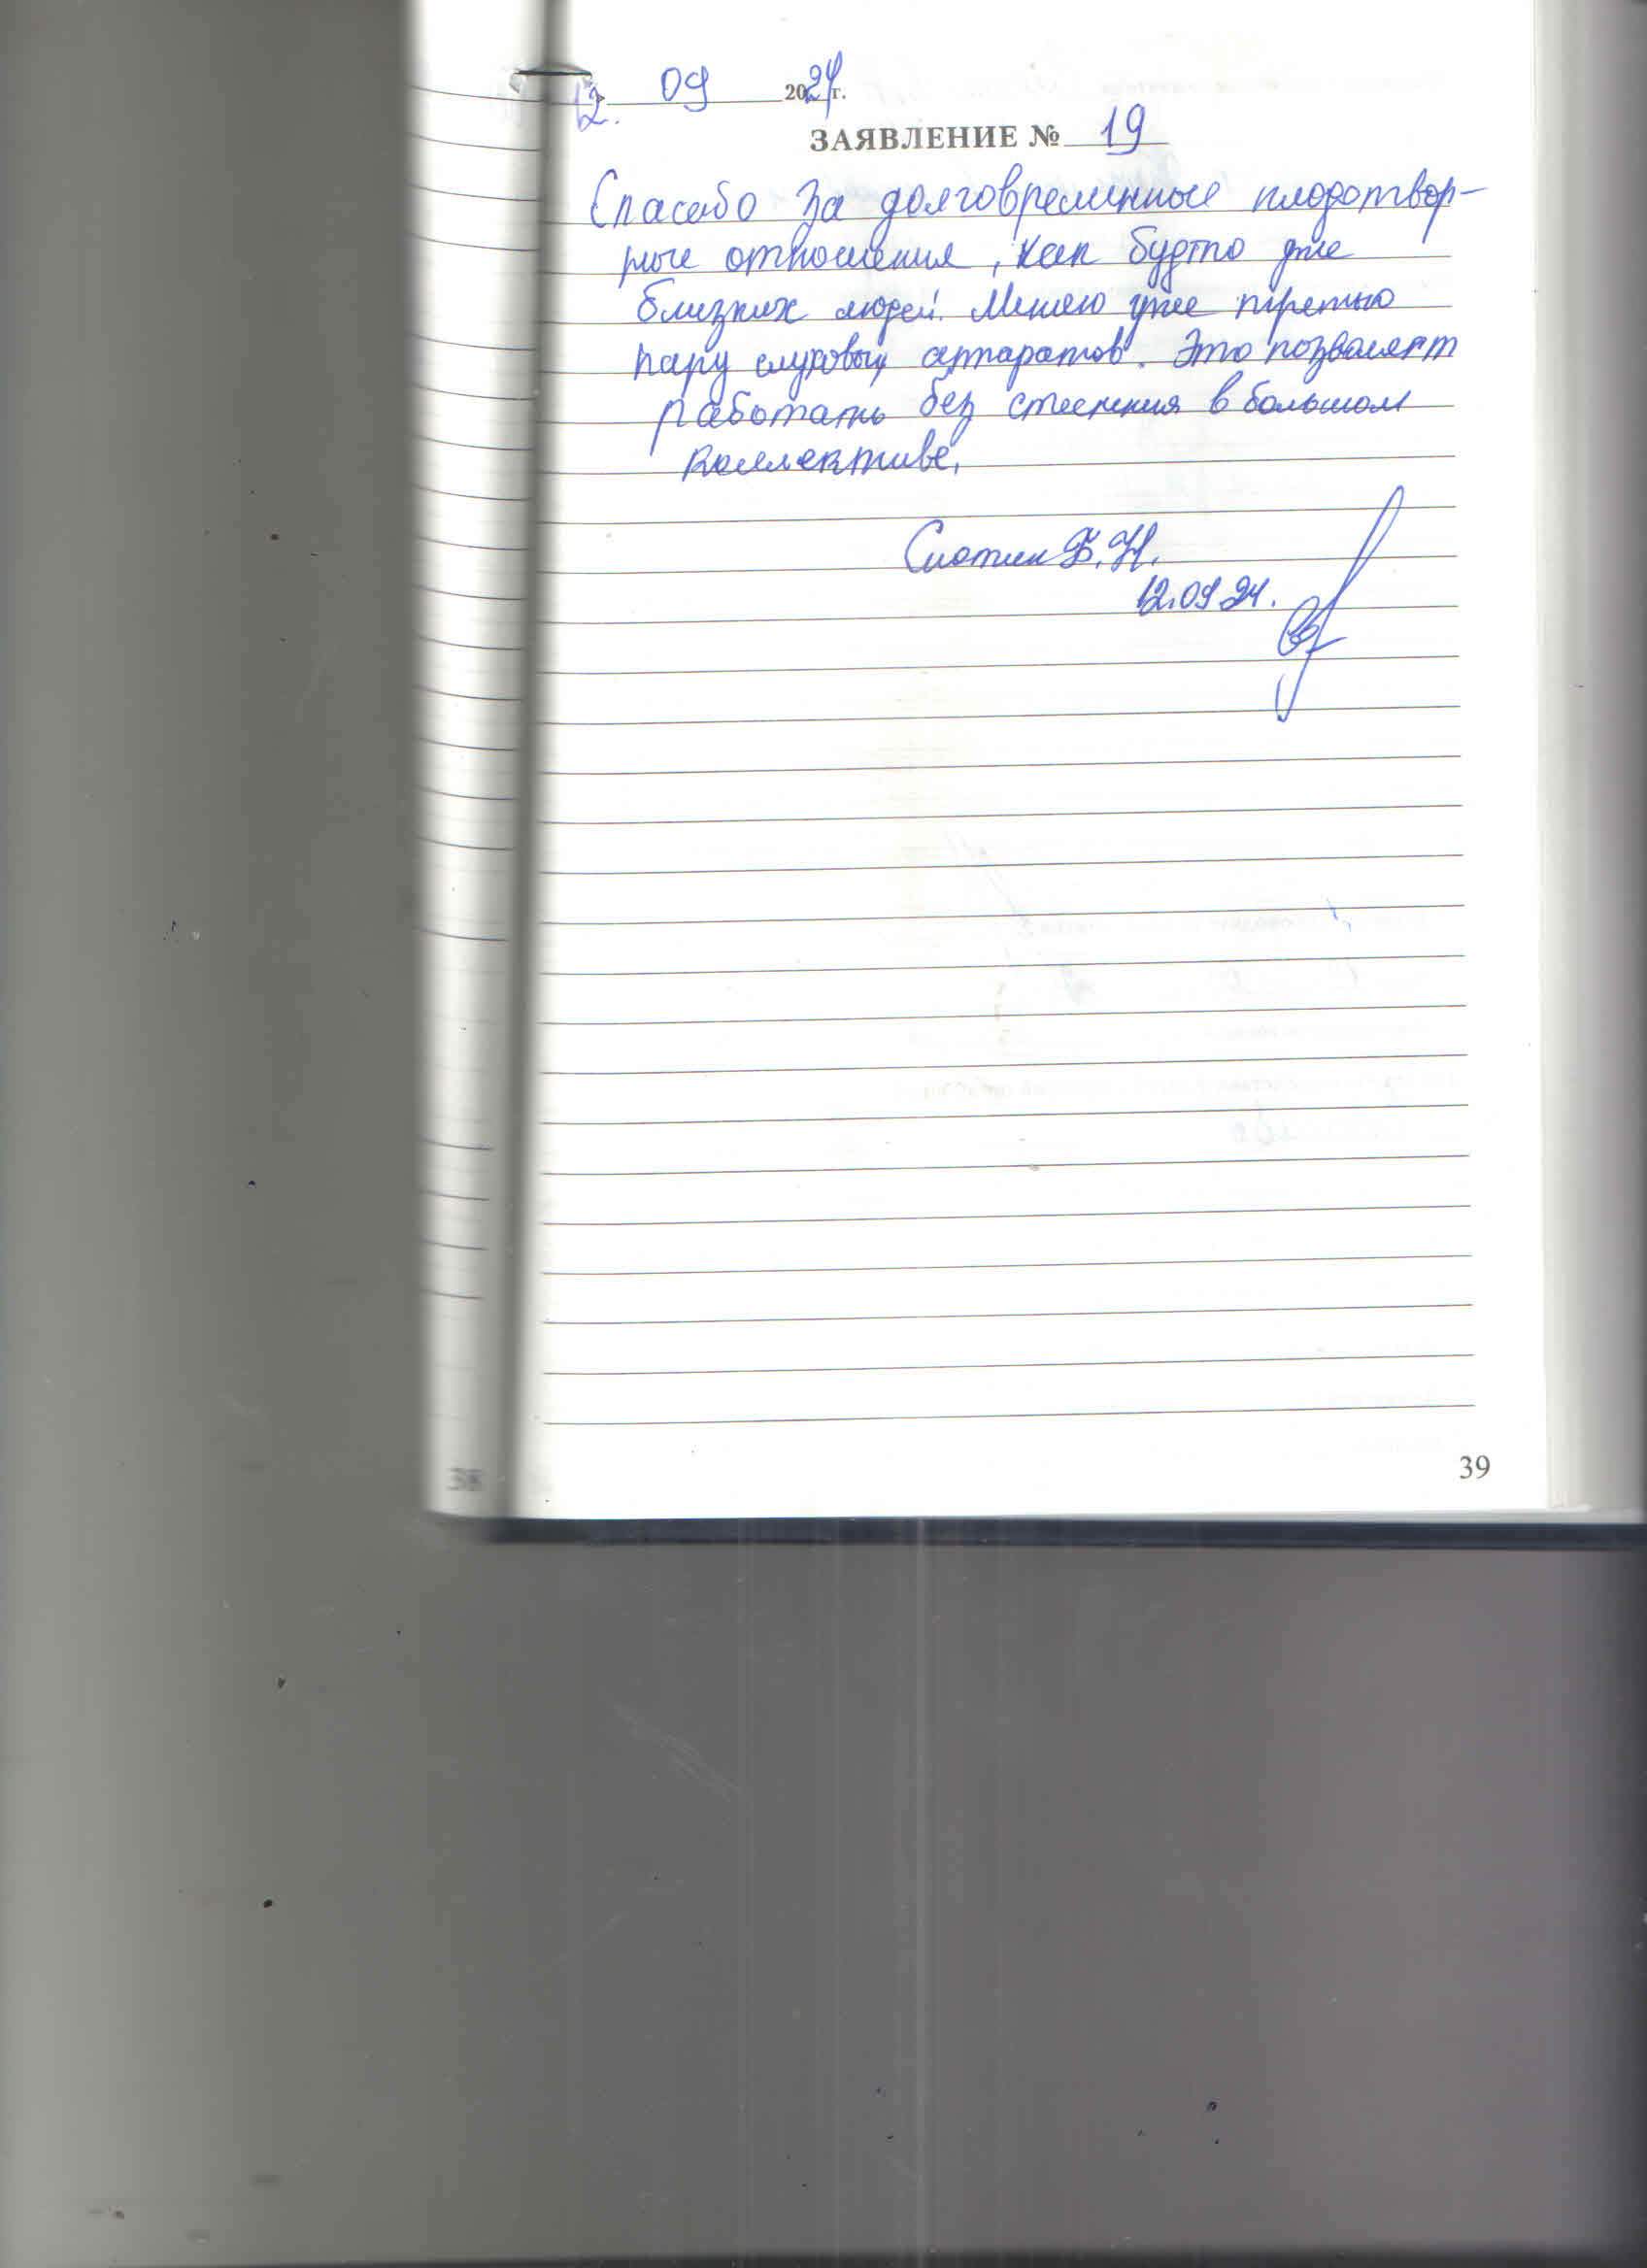 12. 09 2024г.
ЗАЯВЛЕНИЕ № 19
Спасибо за долговременные плодотвор-
ные отношения, как будто уже
близких людей. Меняю уже третью
пару слуховых аппаратов. Это позволяет
работать без стеснения в большом
коллективе.
Б.Н.
12.09.24.
39